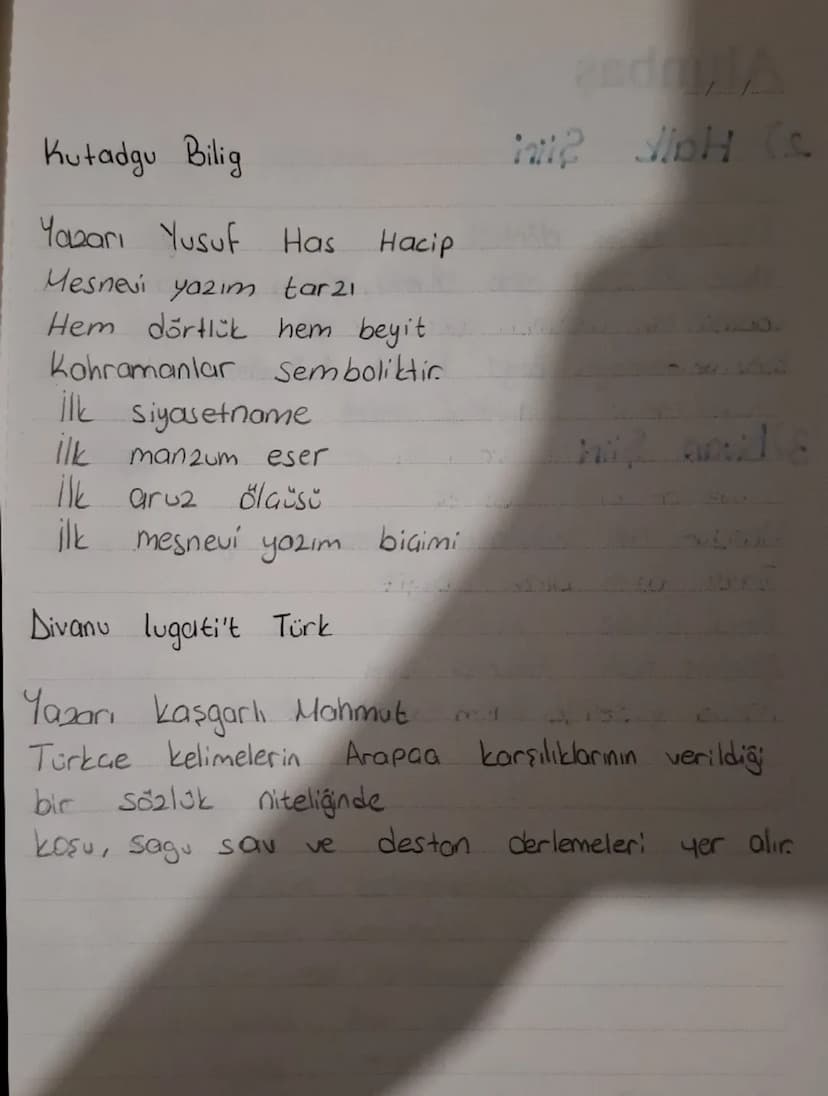 Kutadgu Bilig
Yazarı Yusuf Has Hacip
Mesnevi yazım tarzı
Hem dörtlük hem beyit
Kahramanlar semboliktir.
İlk siyasetname
İlk manzum eser
İlk aruz ölçüsü
İlk mesnevi yazım biçimi
Divanu lugati't Türk
Yazarı Kaşgarlı Mahmut
Türkçe kelimelerin Arapça karşılıklarının verildiği
bir sözlük niteliğinde
koşu, sagu sav ve destan derlemeleri yer alır.